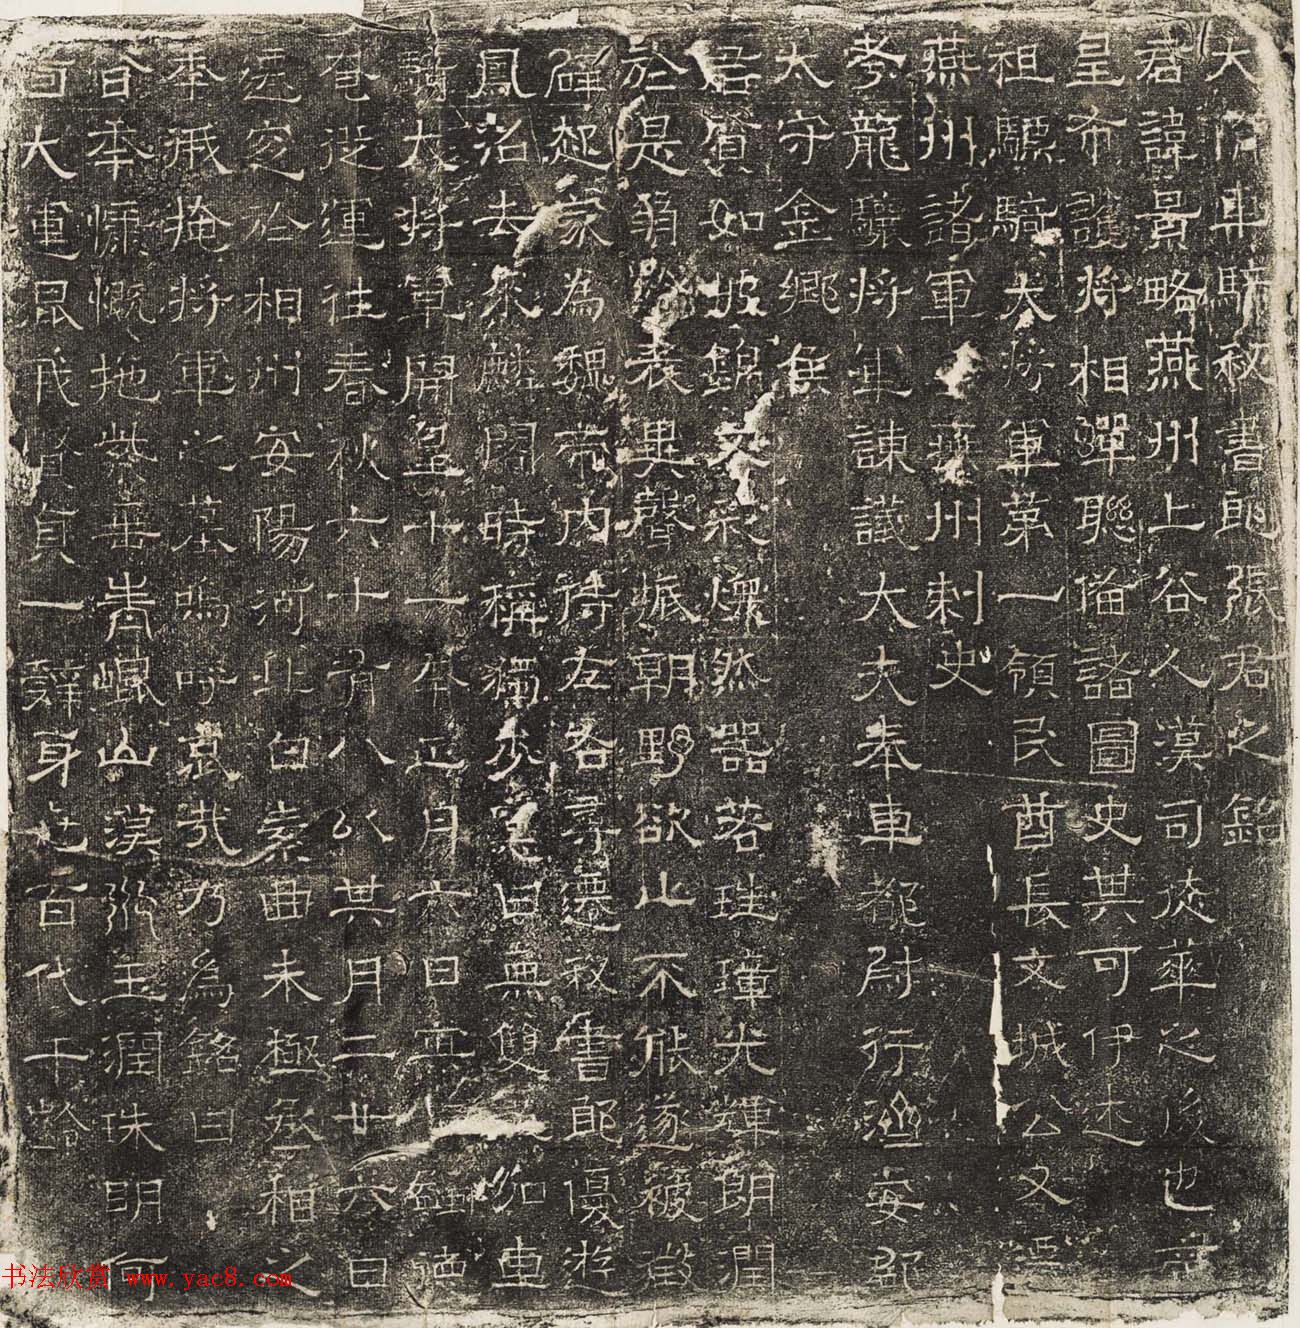 大隋車騎秘書郎張君之銘
君諱景略燕州上谷人漢司徒華之後也
皇帝將相蟬聯備諸圖史其可伊述
祖驃騎大將軍第一領民酋長文城公又
燕州諸軍事燕州刺史
考龍驤將軍諫議大夫奉車都尉行濟安郡
太守金鄉侯
君質如披錦文采爛然器若珪璋光輝朗潤
於是羽表異聲振朝野欲止不能遂被徵
辟起家為魏帝內侍左右尋遷秘書郎優遊
鳳沼去來麟閣時稱獨步曰無雙又加車
騎大將軍開皇十一年正月六日
奄從運往春秋六十有八以其月二廿六日
遷窆於相州安陽河北白素曲未極丞相之
奉俄掩將軍之墓嗚呼哀哉乃為銘曰
昔奉慷慨拖紫垂青峨山漢水玉潤珠明何
大運賢貞一辭身世百代千齡
书法欣赏 www.yac8.com